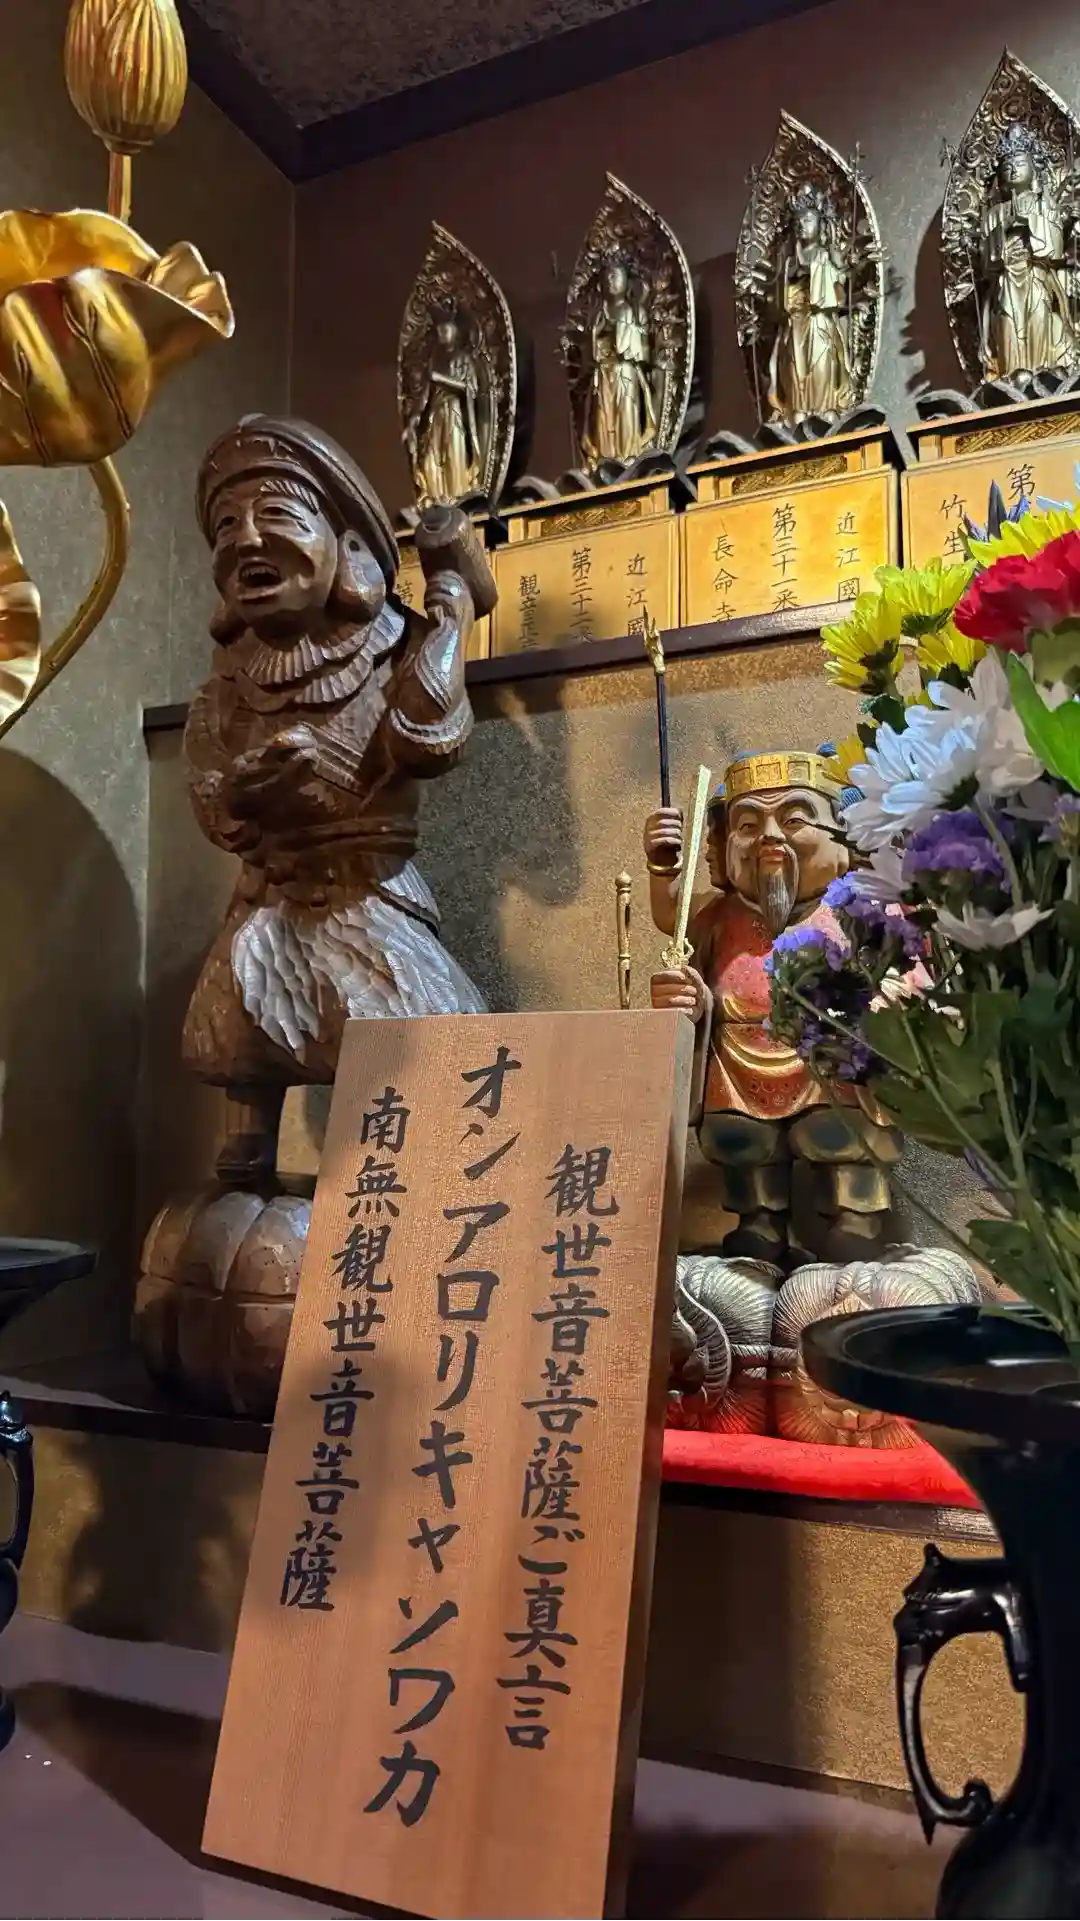 観世音菩薩ご真言
オンアロリキャソワカ
南無観世音菩薩
第
竹生
近江國
第三十一釆
長命寺
近江國
第三十二釆
観音正寺
第